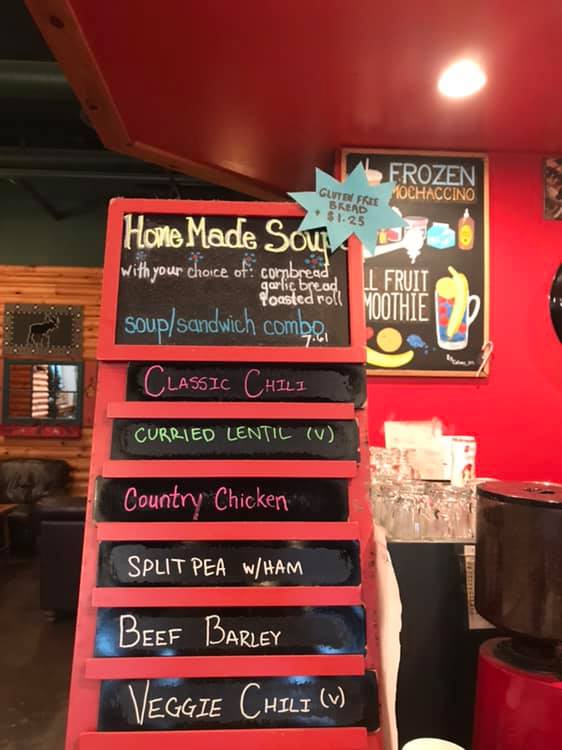 GLUTEN FREE
BREAD
+ $1.25
Home Made Soup
with your choice of: cornbread
garlic bread
roasted roll
soup/sandwich combo
7.61
CLASSIC CHILI
CURRIED LENTIL (V)
Country Chicken
SPLIT PEA W/HAM
BEEF BARLEY
VEGGIE CHILI (V)
FROZEN
MOCHACCINO
LL FRUIT
MOOTHIE